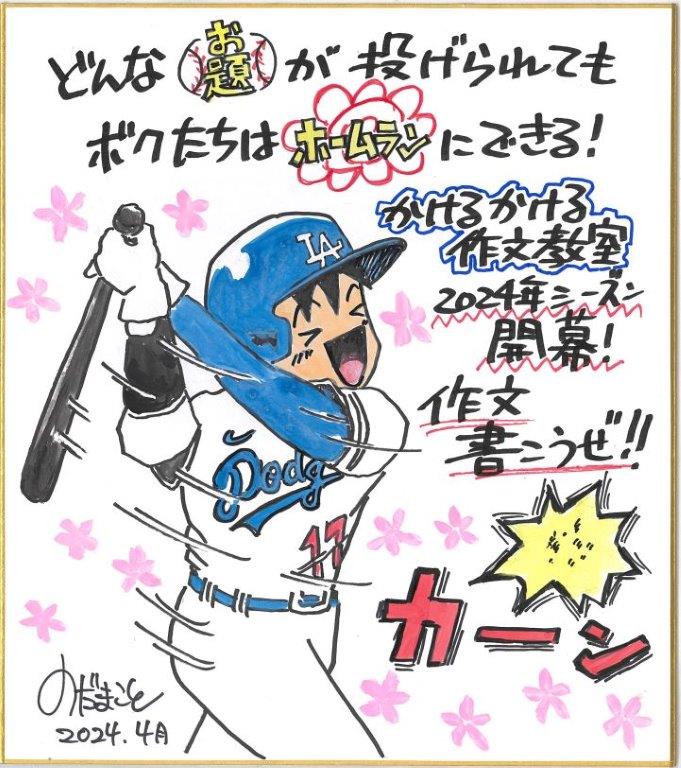 どんなお題が投げられても
ボクたちはホームランにできる!
かけるかける
作文教室
2024年シーズン
開幕!
作文
書こうぜ!!
LA
Dodg
17
カーン
のだまこと
2024.4月